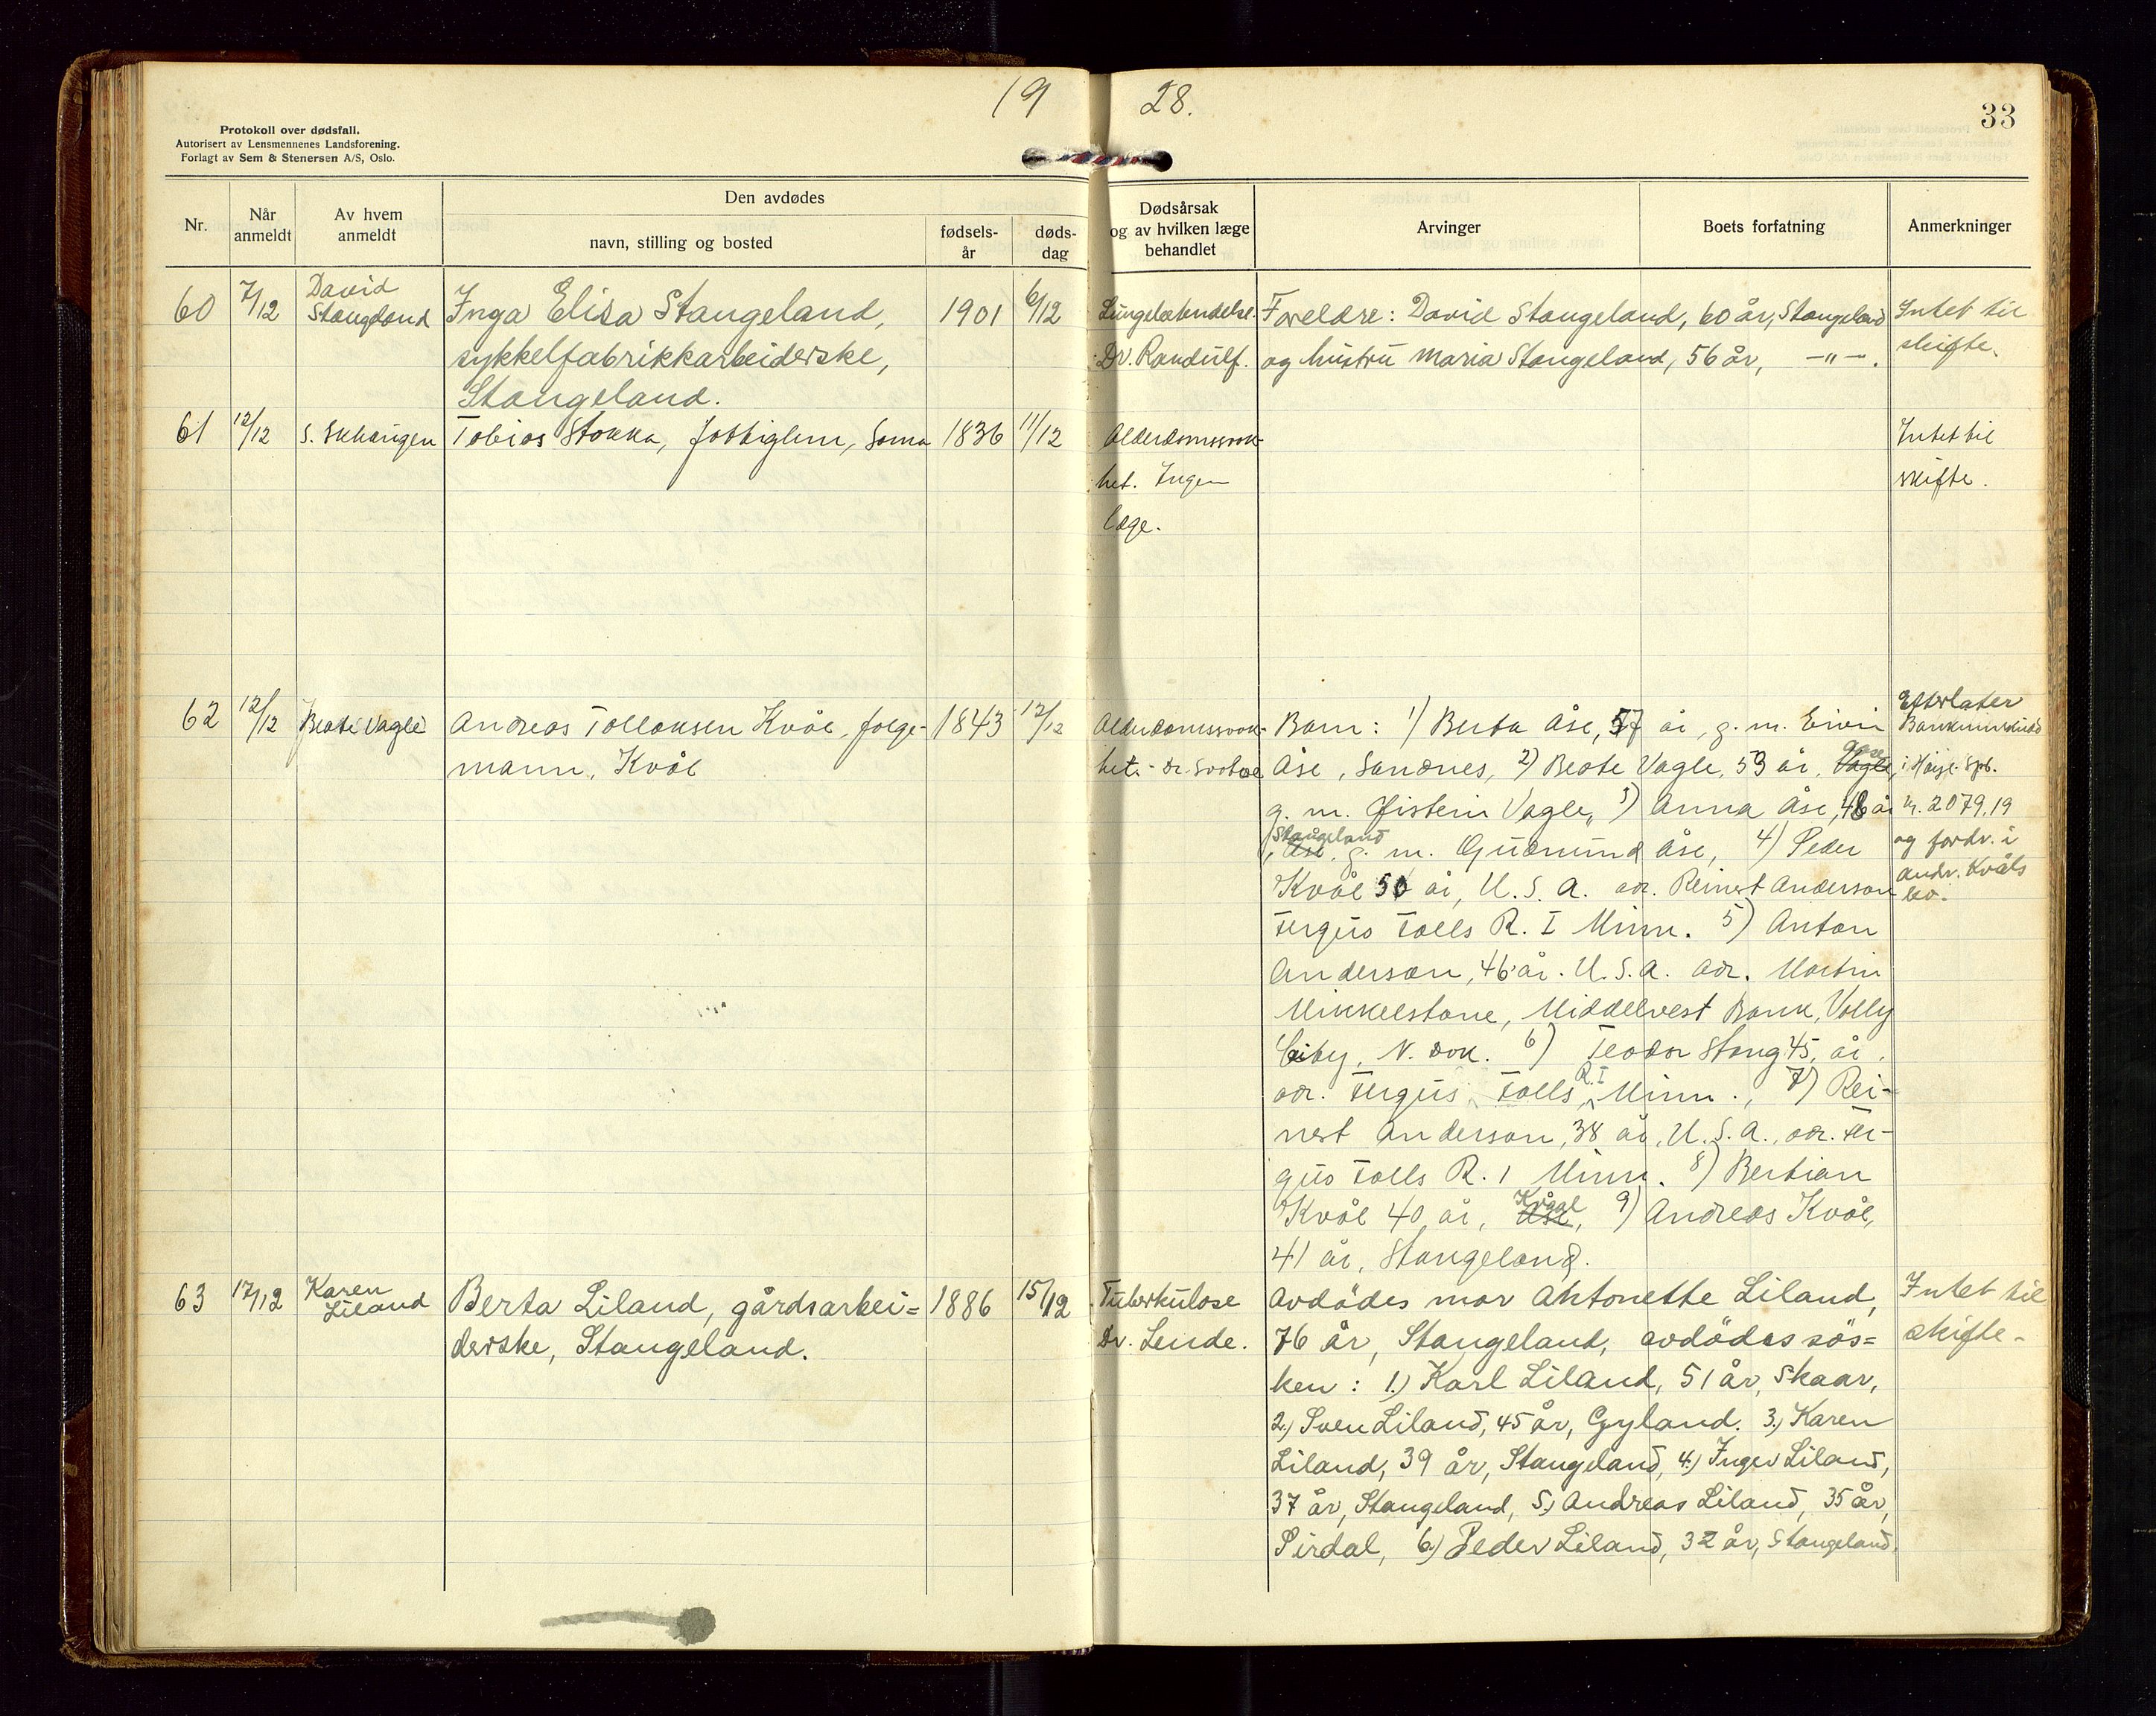 19 28.
33
Protokoll over dødsfall.
Autorisert av Lensmennenes Landsforening.
Forlagt av Sem & Stenersen A/S, Oslo.
Nr.
Når anmeldt
Av hvem anmeldt
Den avdødes
navn, stilling og bosted
fødsels-år
døds-dag
Dødsårsak
og av hvilken læge
behandlet
Arvinger
Boets forfatning
Anmerkninger
60 7/12 David Stangeland
Inga Elisa Stangeland, 1901 6/12
sykkelfabrikkarbeiderske,
Stangeland.
Lungebetendelse.
Dr. Randulf.
Foreldre: David Stangeland, 60 år, Stangeland
og hustru Maria Stangeland, 56 år, —"—.
Intet til
skifte.
61 12/12 S. Skhaugen Tobias Stokka, Soma 1836 11/12
Alderdomssvak-
het. Ingen
læge.
Intet til
skifte.
62 12/12 Beate Vagle Andreas Tollaksen Kvål, folge- 1843 12/12
mann, Kvål
Alderdomssvak-
het. - dr.
Barn: 1) Berta Åse, 57 år, g. m. Eivin
Åse, Sandnes, 2) Beate Vagle, 53 år, Vagle,
g. m. Øistein Vagle, 3) Anna Åse, 48 år
Stangeland
, Åse, g. m. Gudmund Åse, 4) Peder
Kvål 50 år, U. S. A. adr. Reinert Anderson
Fergus Falls R. I Minn. 5) Anton
Anderson, 46 år. U. S. A. adr. Martin
Mikkelstone, Middelvest Bank, Vally
City, N. Dak. 6) Teodor Stang 45, år.
R. I
adr. Fergus Falls, Minn., 7) Rei-
nert Anderson, 38 år, U. S. A., adr. Fer-
gus Falls R. 1 Minn. 8) Bertian
Kvål 40 år, Åse, 9) Andreas Kvål,
41 år, Stangeland.
Efterlater
Bankinnskudd
i Høyl. Spb.
kr. 2079,19
og fordr. i
Andr. Kvåls
bo.
63 17/12 Karen Liland
Berta Liland, gårdsarbei= 1886 15/12
derske, Stangeland.
Tuberkulose
Dr. Lende.
Avdødes mor Antonette Liland,
76 år, Stangeland, avdødes søs=
ken: 1.) Karl Liland, 51 år, Skaar,
2.) Sven Liland, 45 år, Gyland. 3.) Karen
Liland, 39 år, Stangeland, 4.) Inger Liland,
37 år, Stangeland, 5.) Andreas Liland, 35 år,
Sirdal, 6.) Peder Liland, 32 år, Stangeland.
Intet til
skifte-